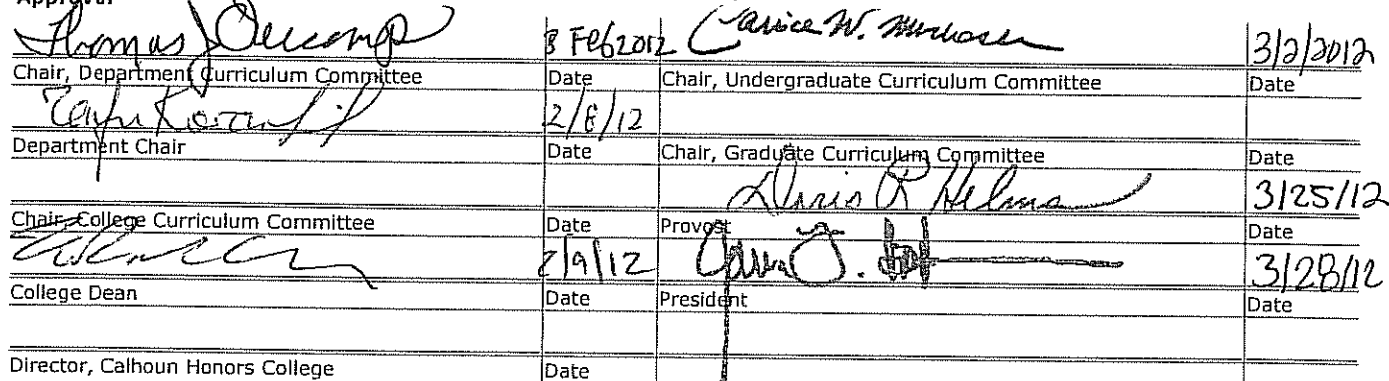 Approval
Thomas J 3 Feb 2012 Janice W. 3/2/2012
Chair, Department Curriculum Committee Date Chair, Undergraduate Curriculum Committee Date
2/8/12
Department Chair Date Chair, Graduate Curriculum Committee Date
Doris R Helms 3/25/12
Chair, College Curriculum Committee Date Provost Date
2/9/12 3/28/12
College Dean Date President Date
Director, Calhoun Honors College Date